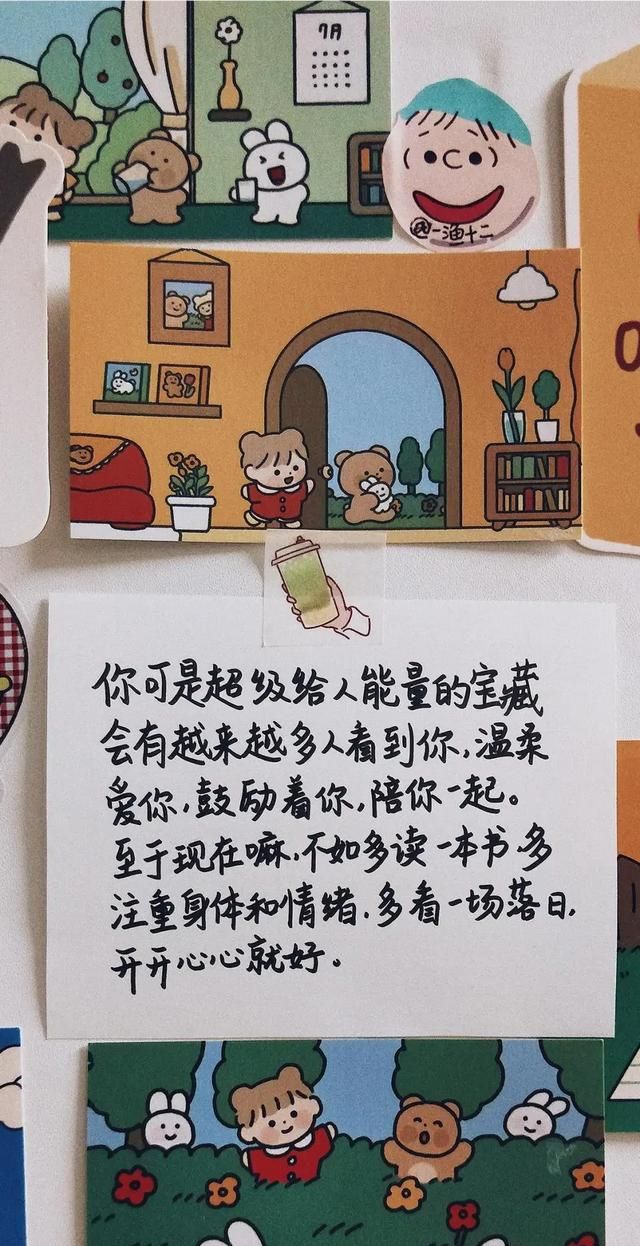 7月
@一渔十二
你可是超级给人能量的宝藏
会有越来越多人看到你,温柔
爱你,鼓励着你,陪你一起。
至于现在嘛,不如多读一本书,多
注重身体和情绪,多看一场落日,
开开心心就好。